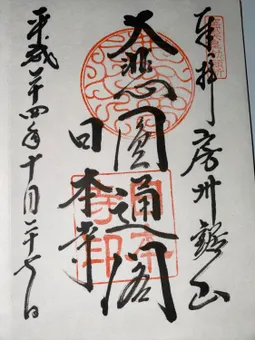 奉拝 房州鋸山
大悲圓通閣
日本寺
平成二十四年十月二十七日